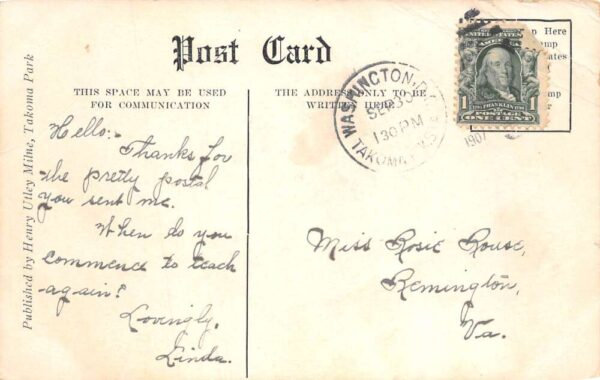 Post Card
THIS SPACE MAY BE USED
FOR COMMUNICATION
THE ADDRESS ONLY TO BE
WRITTEN HERE
Published by Henry Utley Milne, Takoma Park
Hello:-
Thanks for
the pretty postal
you sent me.
When do you
commence to teach
again?
Lovingly,
Linda.
Miss Rosie Rouse,
Remington,
Va.
WASHINGTON, D.
SEP 3
130 PM
TAKOMA
1907
Here
UNITED STATES
1 FRANKLIN 1
POSTAGE
ONE CENT